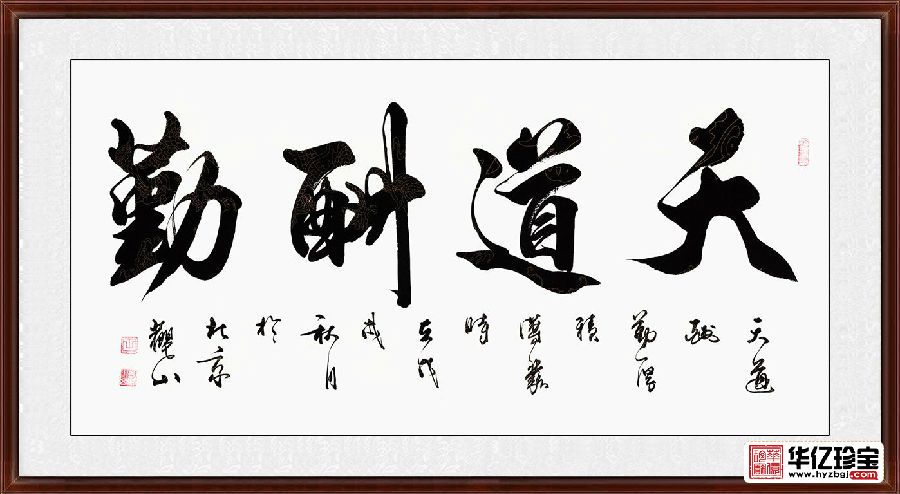 天道酬勤
天道
酬
勤厚
積
薄發
時
在戊
戌
秋月
於
北京
觀山
华亿珍宝
www.hyzbgj.com